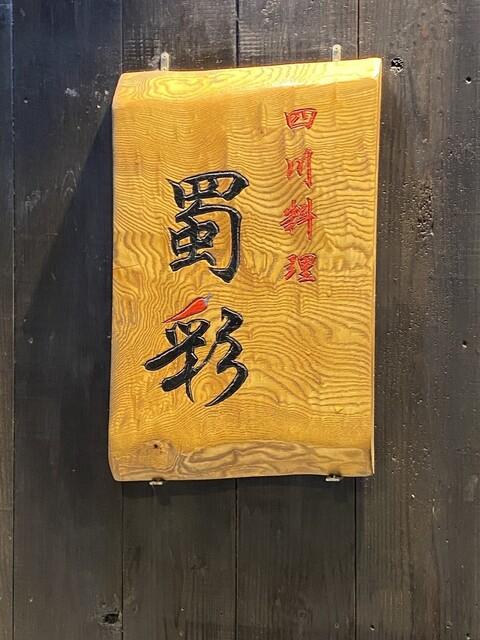 四川料理
蜀彩